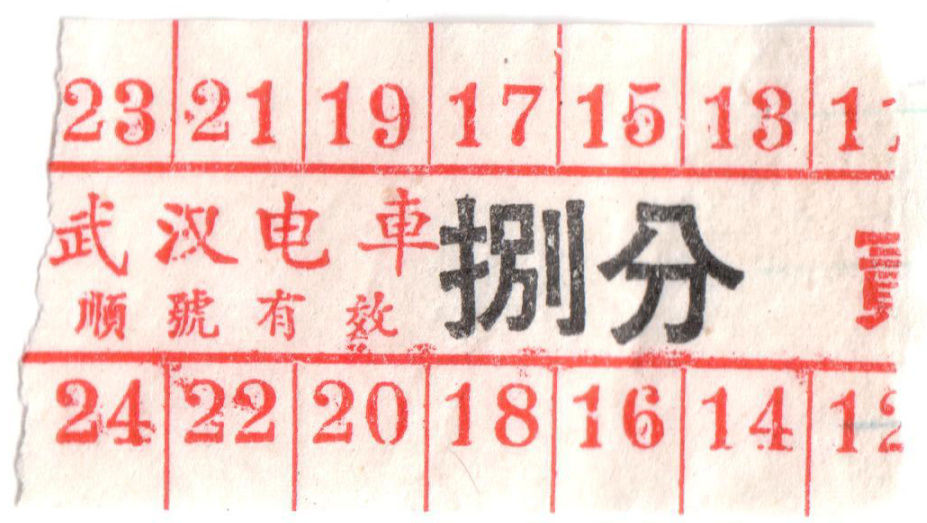 23 21 19 17 15 13
武汉电車 捌分
顺號有效
24 22 20 18 16 14 12